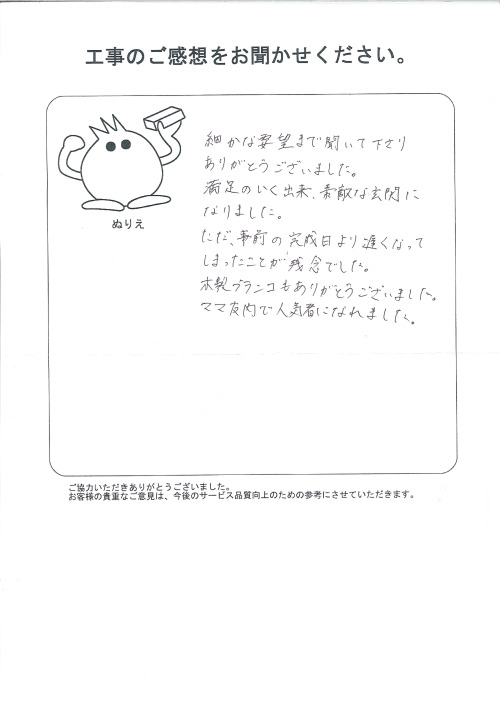 工事のご感想をお聞かせください。
細かな要望まで聞いて下さり
ありがとうございました。
満足のいく出来、素敵な玄関に
なりました。
ただ、事前の完成日より遅くなって
しまったことが残念でした。
木製ブランコもありがとうございました。
ママ友内で人気者になれました。
ぬりえ
ご協力いただきありがとうございました。
お客様の貴重なご意見は、今後のサービス品質向上のための参考にさせていただきます。